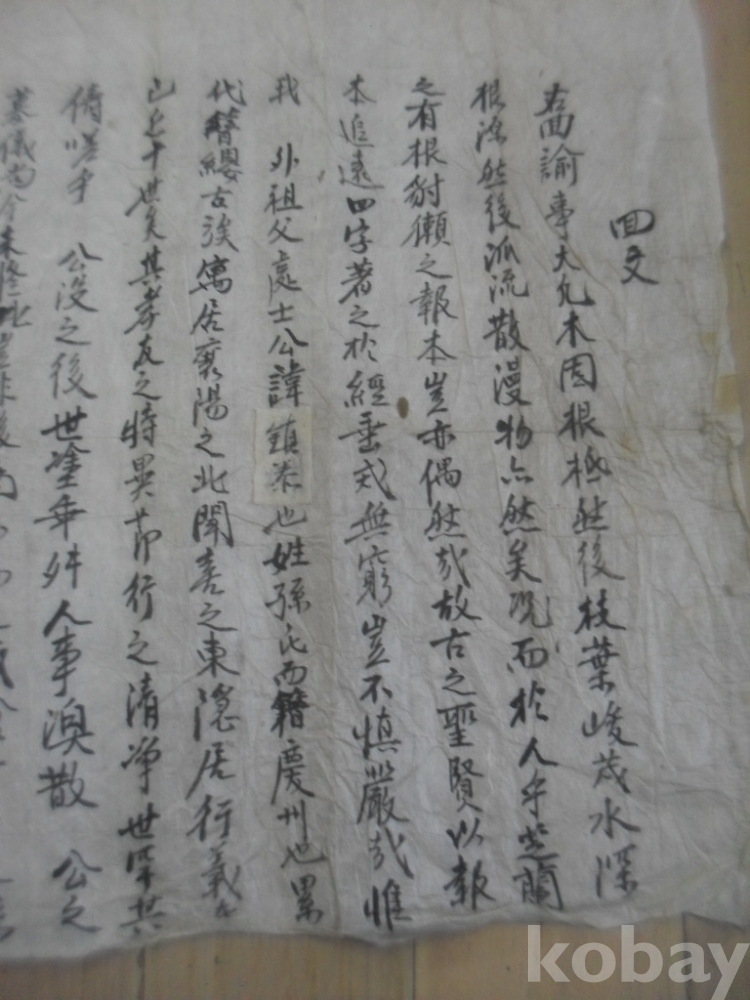 回文
右回諭事大凡木固根柢然後枝葉峻茂水深
根源然後派流散漫物亦然矣況而於人乎芝蘭
之有根豺獺之報本豈亦偶然哉故古之聖賢以報
本追遠四字著之於經垂式無窮豈不慎嚴哉惟
我 外祖父處士公諱鎮 也姓孫氏而籍慶州也累
代簪纓古族寓居襄陽之北聞喜之東隱居行義
已 十世矣其孝友之特異節行之清淨世罕其
公沒之後世塗乖舛人事渙散 公之
墓儀尚今未
kobay